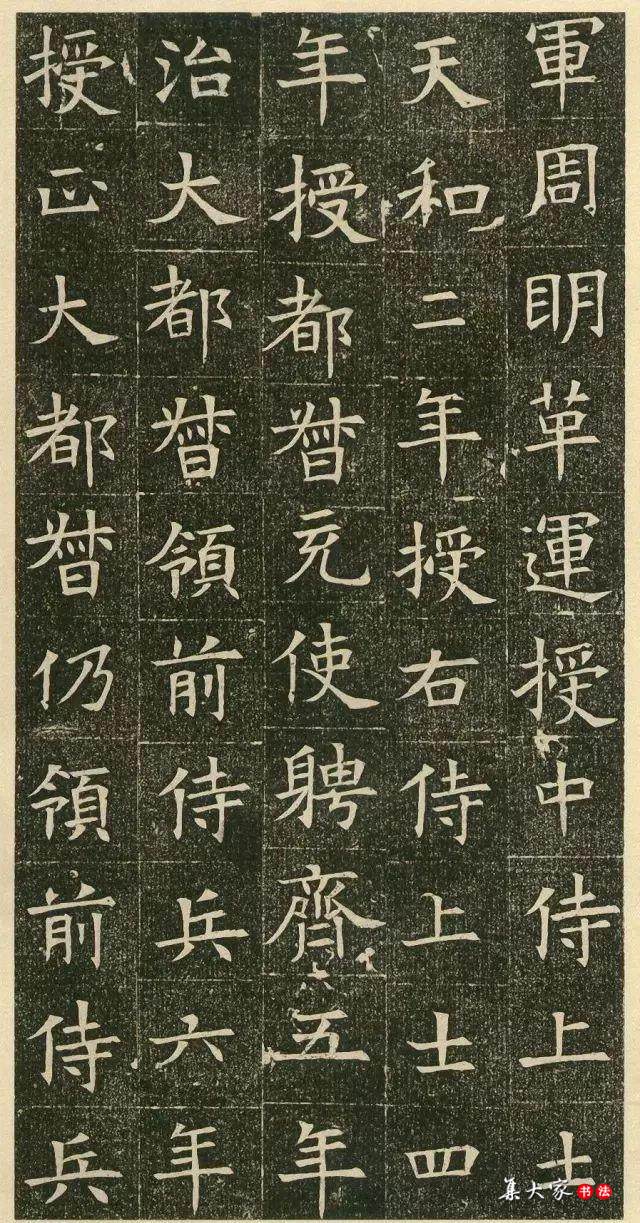 軍周明革運授中侍上士
天和二年授右侍上士四
年授都督充使聘齊五年
治大都督領前侍兵六年
授正大都督仍領前侍兵
集大家书法